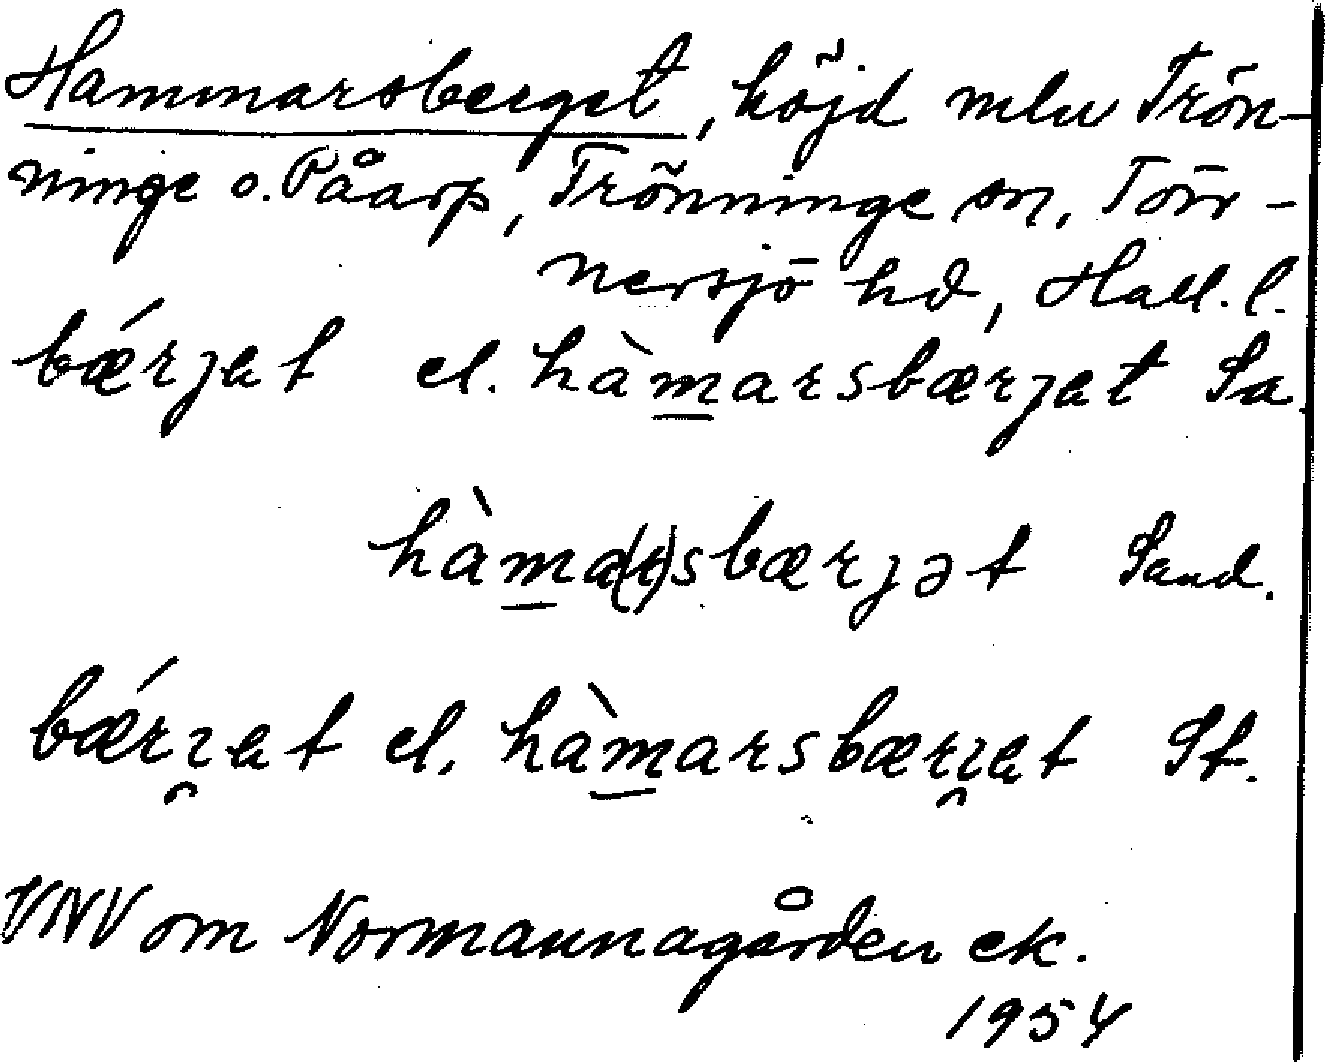 Hammarsberget, höjd mlu Trön-
ninge o. Påarp, Trönninge sn, Tönn-
nersjö hd, Hall. l.
bǽrjet el. hàmarsbærjet Sa.
hàma(r)sbærjət Sand.
bǽrjet el. hàmarsbærjet St.
VNV om Normannagården ek.
1954